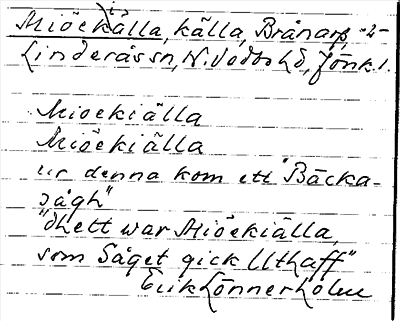 Miöekiälla, källa, Brånarp, -2-
Linderås sn, N. Vedbo hd, Jönk. l.
Mioekiälla
Miöekiälla
ur denna kom ett "Bäcka-
sågh"
"dhett war Miöekiälla,
som Såget gick Uthaff"
Erik Lönnerholm